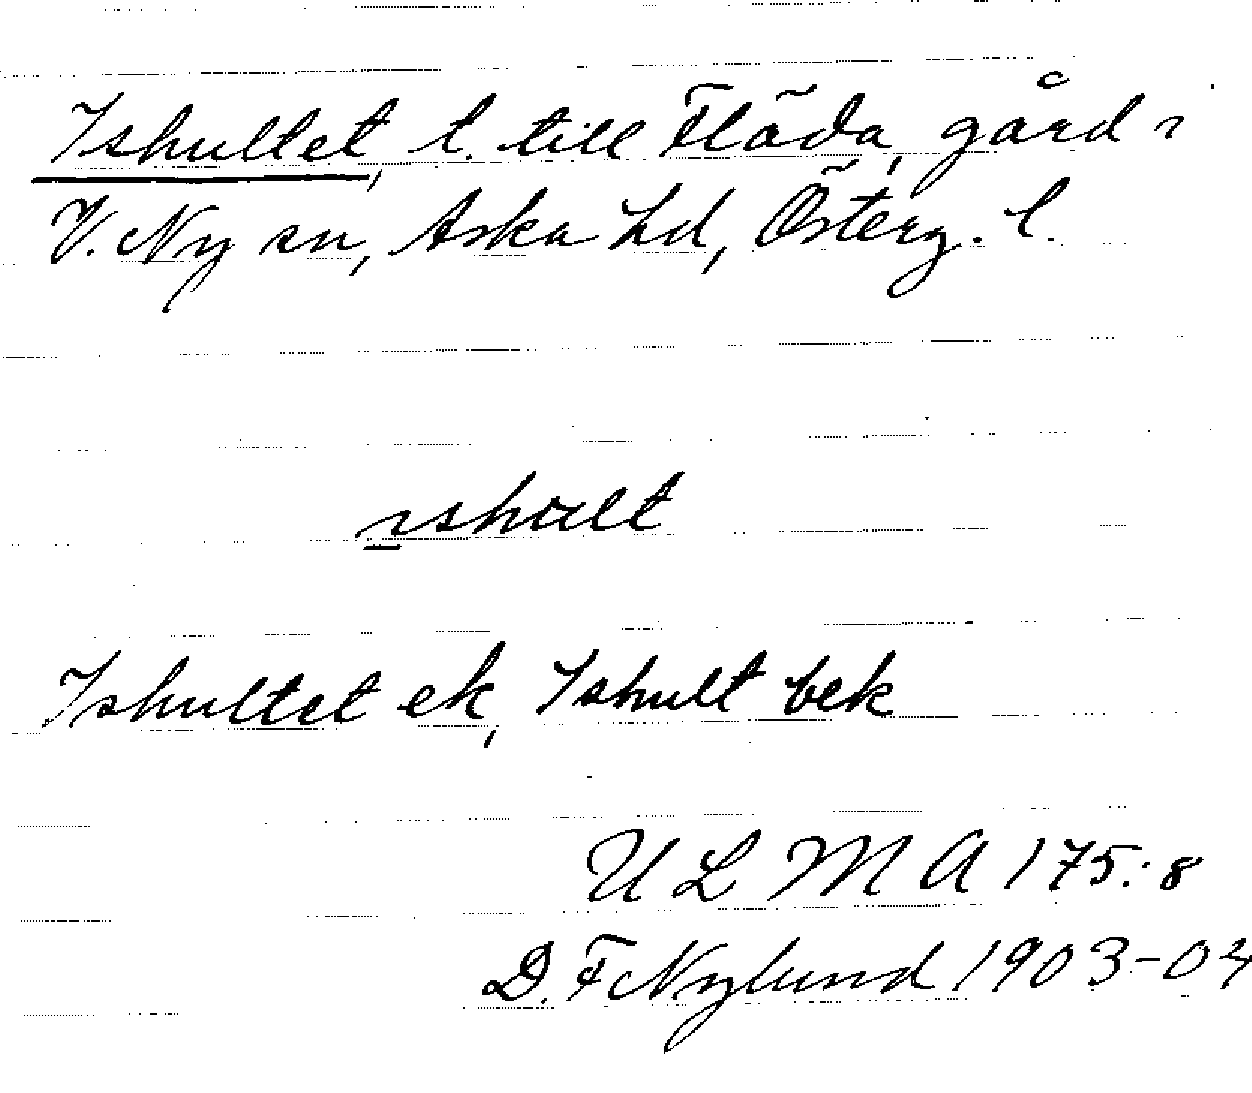 Ishultet, t. till Fläda, gård i
V. Ny sn, Aska hd, Österg. l.
ishult
Ishultet ek, Ishult bek
U L M A 175:8
D. F Nylund 1903-04